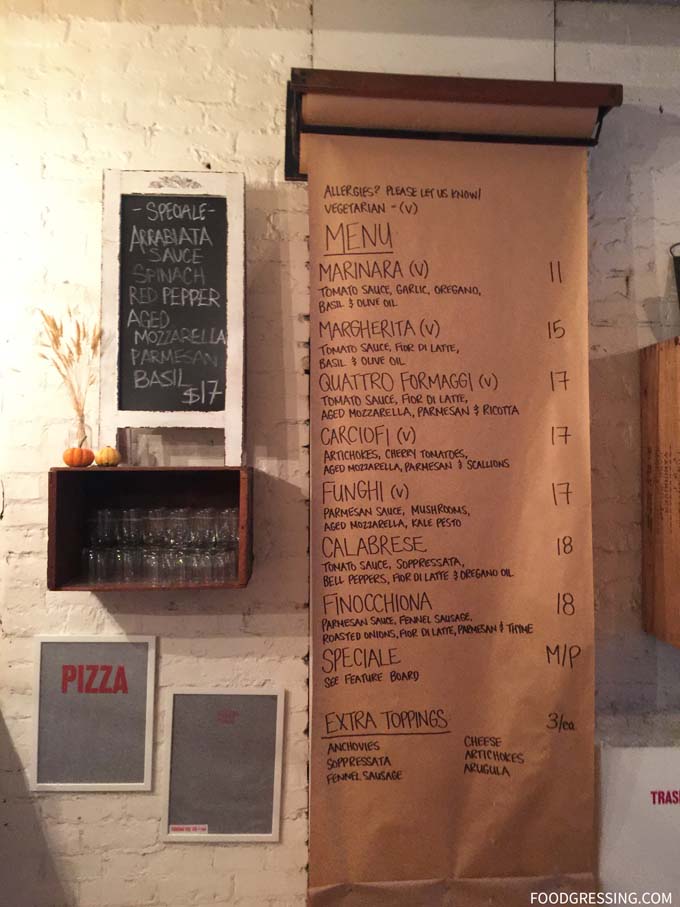 - SPECIALE -
ARRABIATA
SAUCE
SPINACH
RED PEPPER
AGED
MOZZARELLA
PARMESAN
BASIL
$17
ALLERGIES? PLEASE LET US KNOW!
VEGETARIAN - (V)
MENU
MARINARA (V) 11
TOMATO SAUCE, GARLIC, OREGANO,
BASIL & OLIVE OIL
MARGHERITA (V) 15
TOMATO SAUCE, FIOR DI LATTE,
BASIL & OLIVE OIL
QUATTRO FORMAGGI (V) 17
TOMATO SAUCE, FIOR DI LATTE,
AGED MOZZARELLA, PARMESAN & RICOTTA
CARCIOFI (V) 17
ARTICHOKES, CHERRY TOMATOES,
AGED MOZZARELLA, PARMESAN & SCALLIONS
FUNGHI (V) 17
PARMESAN SAUCE, MUSHROOMS,
AGED MOZZARELLA, KALE PESTO
CALABRESE 18
TOMATO SAUCE, SOPPRESSATA,
BELL PEPPERS, FIOR DI LATTE & OREGANO OIL
FINOCCHIONA 18
PARMESAN SAUCE, FENNEL SAUSAGE,
ROASTED ONIONS, FIOR DI LATTE, PARMESAN & THYME
SPECIALE M/P
SEE FEATURE BOARD
EXTRA TOPPINGS 3/ea
ANCHOVIES CHEESE
SOPPRESSATA ARTICHOKES
FENNEL SAUSAGE ARUGULA
PIZZA
TRAS
FOODGRESSING.COM